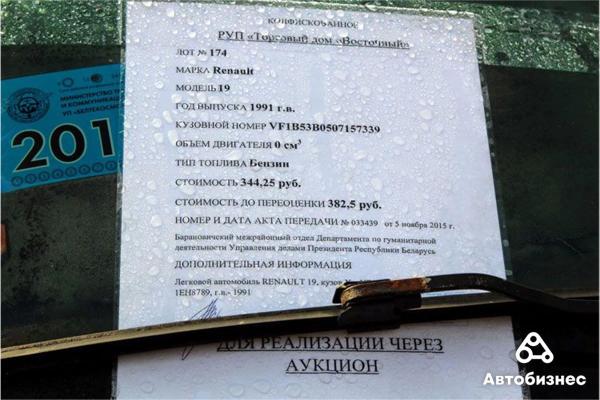 КОНФИСКОВАННОЕ
РУП «Торговый дом «Восточный»
ЛОТ № 174
МАРКА Renault
МОДЕЛЬ 19
ГОД ВЫПУСКА 1991 г.в.
КУЗОВНОЙ НОМЕР VF1B53B0507157339
ОБЪЕМ ДВИГАТЕЛЯ 0 см³
ТИП ТОПЛИВА Бензин
СТОИМОСТЬ 344,25 руб.
СТОИМОСТЬ ДО ПЕРЕОЦЕНКИ 382,5 руб.
НОМЕР И ДАТА АКТА ПЕРЕДАЧИ № 033439 от 5 ноября 2015 г.
Барановичский межрайонный отдел Департамента по гуманитарной
деятельности Управления делами Президента Республики Беларусь
ДОПОЛНИТЕЛЬНАЯ ИНФОРМАЦИЯ
Легковой автомобиль RENAULT 19, кузов
1EH8789, г.в.- 1991
ДЛЯ РЕАЛИЗАЦИИ ЧЕРЕЗ
АУКЦИОН
МИНИСТЕРСТВО
И КОММУНИКАЦ
УП «БЕЛТЕХОСМ
201
Автобизнес